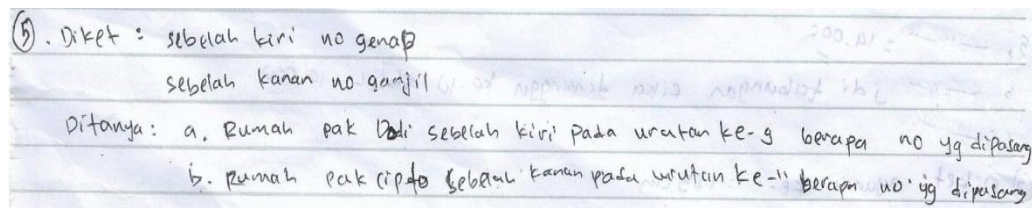 ⑤. Diket : sebelah kiri no genap
sebelah kanan no ganjil
Ditanya : a. Rumah pak Dodi sebelah kiri pada urutan ke-9 berapa no yg dipasang
b. Rumah pak cipto sebelah kanan pada urutan ke-11 berapa no yg dipasang